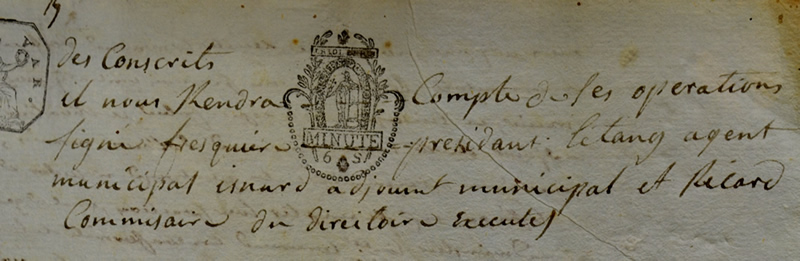 des Conscrits
il nous Rendra Compte de ses operations
signé fresquiere présidant. létang agent
municipal isnard adjoint municipal et Ricard
Commisaire du direitoire Executif
MINUTE
6 S
AR